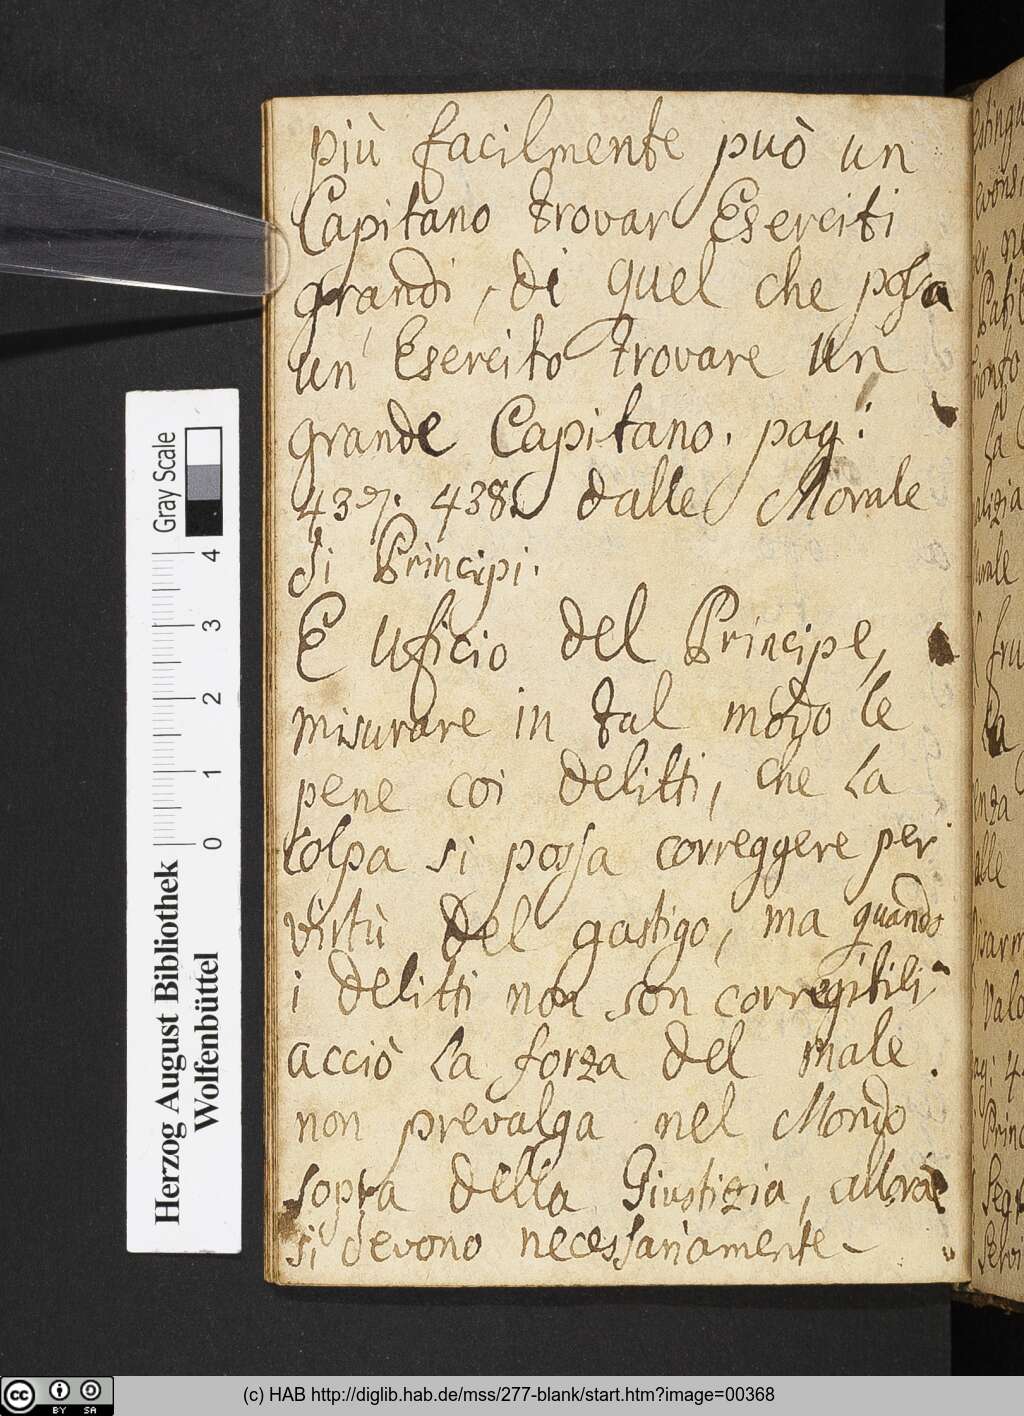 più facilmente può un
Capitano trovar Eserciti
grandi, di quel che possa
un Esercito trovare un
grande Capitano. pag:
437. 438. dalle Morale
di Principi.
E Uficio del Principe,
misurare in tal modo le
pene coi delitti, che la
Colpa si possa correggere per
virtù del gastigo, ma quando
i delitti non son corregibili
acciò la forza del male
non prevalga nel Mondo
sopra della Giustizia, allora
si devono necessariamente
Herzog August Bibliothek
Wolfenbüttel
0 1 2 3 4
Gray Scale
cc BY SA
(c) HAB http://diglib.hab.de/mss/277-blank/start.htm?image=00368